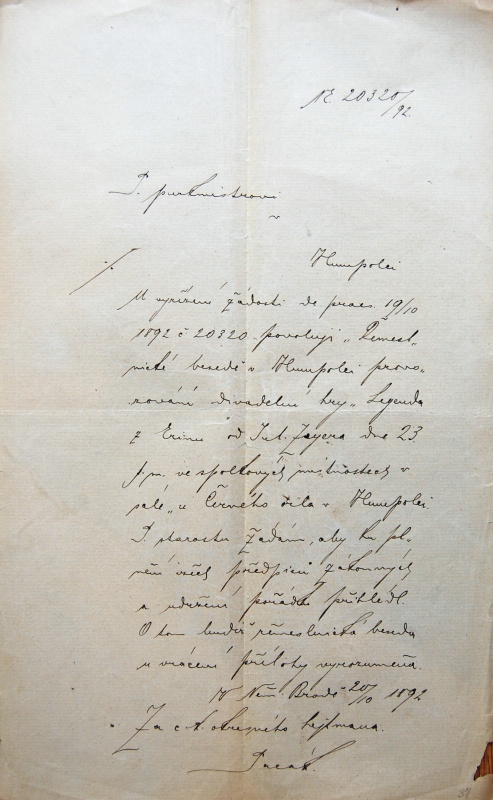 Nr. 20320/92
P. purkmistrovi
v
Humpolci
./.
U vyřízení žádosti de praes. 19/10
1892 č 20320 povoluji „Řemesl„
nické besedě v Humpolci provo„
zování divadelní hry „Legenda
z Erinu" od Jul. Zeyera dne 23
t. m. ve spolkových místnostech v
sále „u Černého orla v Humpolci.
P. starostu žádám, aby ku pl„
nění všech předpisů zákonných
a udržení pořádku přihlédl.
O tom budiž řemeslnická beseda
u vrácení přílohy vyrozuměna.
V Něm. Brodě 20/10 1892
Za c. k. okresního hejtmana.
Pacák.